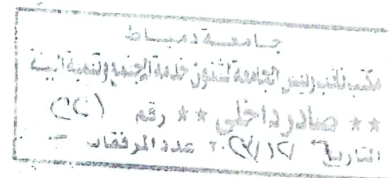 جامعة دمياط
مكتب نائب رئيس الجامعة لشئون خدمة المجتمع وتنمية البيئة
** صادر داخلي ** رقم ( )
التاريخ ٢٠٢ عدد المرفقات -